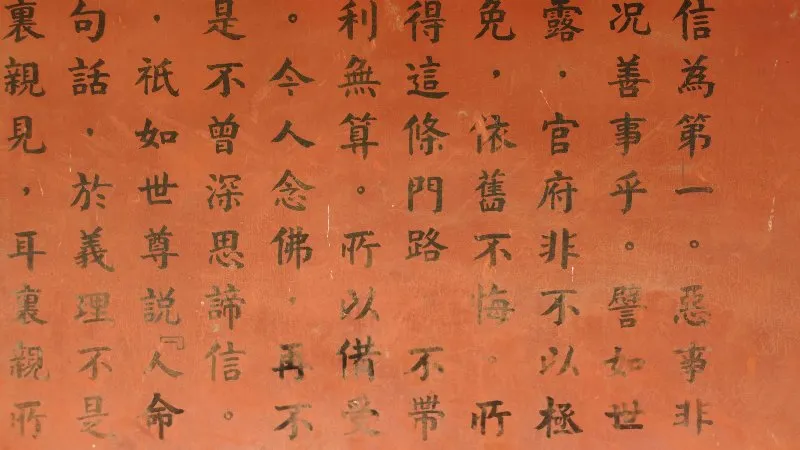 信為第一。惡事非
况善事乎。譬如世
露．官府非不以極
免，依舊不悔。所
得這條門路 不帶
利無算。所以備受
。今人念佛．再不
是不曾深思諦信。
．祇如世尊説『人命
句話．於義理不是
裏親見，耳裏親所